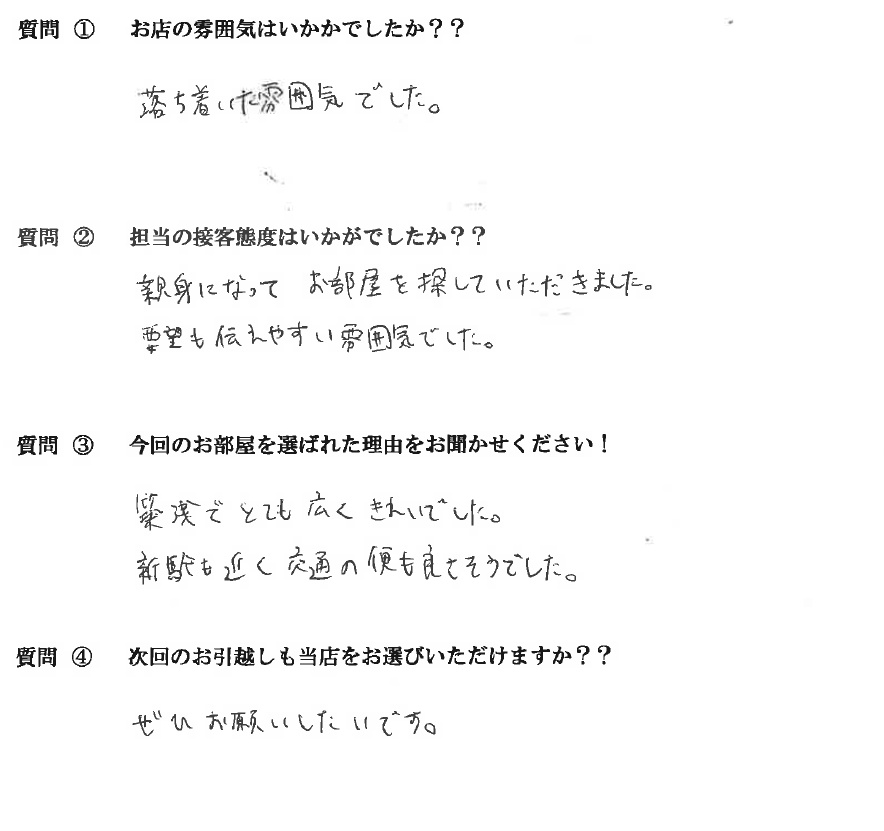 質問 ① お店の雰囲気はいかかでしたか？？
落ち着いた雰囲気でした。
質問 ② 担当の接客態度はいかがでしたか？？
親身になって お部屋を探していただきました。
要望も伝えやすい雰囲気でした。
質問 ③ 今回のお部屋を選ばれた理由をお聞かせください！
築浅でとても広くきれいでした。
新駅も近く交通の便も良さそうでした。
質問 ④ 次回のお引越しも当店をお選びいただけますか？？
ぜひお願いしたいです。